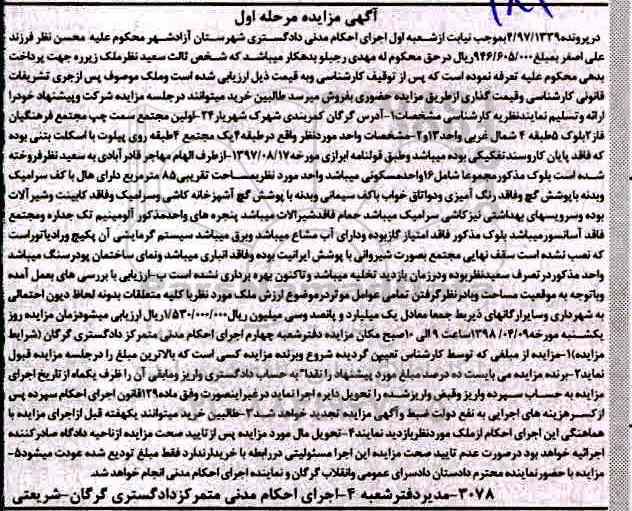 آگهی مزایده مرحله اول
درپرونده۴/۹۷/۱۳۳۹بموجب نیابت ازشعبه اول اجرای احکام مدنی دادگستری شهرستان آزادشهر محکوم علیه محسن نظر فرزند
علی اصفر بمبلغ۹۴۶/۶۰۵/۰۰۰ریال درحق محکوم له مهدی رجبلو بدهکار میباشد که شخص ثالث سعید نظر ملک زیررا جهت پرداخت
بدهی محکوم علیه تعرفه نموده است که پس از توقیف کارشناسی وبه قیمت ذیل ارزیابی شده است وملک موصوف پس ازجری تشریفات
قانونی کارشناسی وقیمت گذاری ازطریق مزایده حضوری بفروش میرسد طالبین خرید میتوانند درجلسه مزایده شرکت وپیشنهاد خودرا
ارائه وتسلیم نمایندنظریه کارشناسی مشخصات۱-آدرس گرگان کمربندی شهرک شهریار۲۴-اولین مجتمع سمت چپ مجتمع فرهنگیان
فاز۲بلوک ۵طبقه ۴ شمال غربی واحد۱۳و۲-مشخصات واحد موردنظر واقع درطبقه۴یک مجتمع ۴طبقه روی پیلوت با اسکلت بتنی بوده
که فاقد پایان کاروسندتفکیکی بوده میباشد وطبق قولنامه ابرازی مورخه۱۳۹۷/۰۸/۱۷-ازطرف الهام مهاجر قادرآبادی به سعید نظرفروخته
شده است بلوک مذکورمجموعا شامل۱۶واحدمسکونی میباشد واحد مورد نظربمساحت تقریبی۸۵ مترمربع دارای هال با کف سرامیک
وبدنه باپوشش گچ وفاقد رنگ آمیزی ودواتاق خواب باکف سیمانی وبدنه با پوشش گچ آشپزخانه کاشی وسرامیک وفاقد کابینت وشیرآلات
بوده وسرویسهای بهداشتی نیزکاشی سرامیک میباشد حمام فاقدشیرالات میباشد پنجره های واحدمذکور آلومینیم تک جداره ومجتمع
فاقد آسانسورمیباشد بلوک مذکور فاقد امتیاز گازبوده ودارای آب مشاع میباشد وبرق میباشد سیستم گرمایشی آن پکیچ ورادیاتوراست
که نصب نشده است سقف نهایی مجتمع بصورت شیروانی با پوشش ایرانیت بوده وفاقد انباری میباشد ونمای ساختمان پودرسنگ میباشد
واحد مذکوردرتصرف سعیدنظربوده ودرزمان بازدید تخلیه میباشد وتاکنون بهره برداری نشده است ب-ارزیابی با بررسی های بعمل آمده
وباتوجه به موقعیت مساحت وبادرنظرگرفتن تمامی عوامل موثردرموضوع ارزش ملک مورد نظربا کلیه متعلقات بدونه لحاظ دیون احتمالی
به شهرداری وسایرارگانهای ذیربط جمعا معادل یک میلیارد و پانصد وسی میلیون ریال۱/۵۳۰/۰۰۰/۰۰۰ریال ارزیابی میشودزمان مزایده روز
یکشنبه مورخه۱۳۹۸/۰۴/۰۹ساعت ۹ الی ۱۰صبح مکان مزایده دفترشعبه چهارم اجرای احکام مدنی متمرکز دادگستری گرگان (شرایط
مزایده)۱-مزایده از مبلغی که توسط کارشناس تعیین گردیده شروع وبرنده مزایده کسی است که بالاترین مبلغ را درجلسه مزایده قبول
نماید۲-برنده مزایده می بایست ده درصد مبلغ مورد پیشنهاد را نقدا" به حساب دادگستری واریز ومابقی آن را ظرف یکماه از تاریخ اجرای
مزایده به حساب سپرده واریز وقبض واریزشده را تحویل دایره اجرا نماید درغیراینصورت وفق ماده۱۲۹قانون اجرای احکام سپرده پس
از کسرهزینه های اجرایی به نفع دولت ضبط وآگهی مزایده تجدید خواهد شد۳-طالبین خرید میتوانند یکهفته قبل ازاجرای مزایده با
هماهنگی این اجرای احکام ازملک موردنظربازدید نمایند۴-تحویل مال مورد مزایده پس ازتایید صحت مزایده ازناحیه دادگاه صادرکننده
اجرائیه خواهد بود درصورت عدم تایید صحت مزایده این اجرا مسئولیتی دررابطه با خریدارندارد فقط مبلغ تودیع شده عودت میشود۵-
مزایده با حضورنماینده محترم دادستان دادسرای عمومی وانقلاب گرگان و نماینده اجرای احکام مدنی انجام خواهد شد
۳۰۷۸-مدیردفترشعبه ۴-اجرای احکام مدنی متمرکزدادگستری گرگان-شریعتی